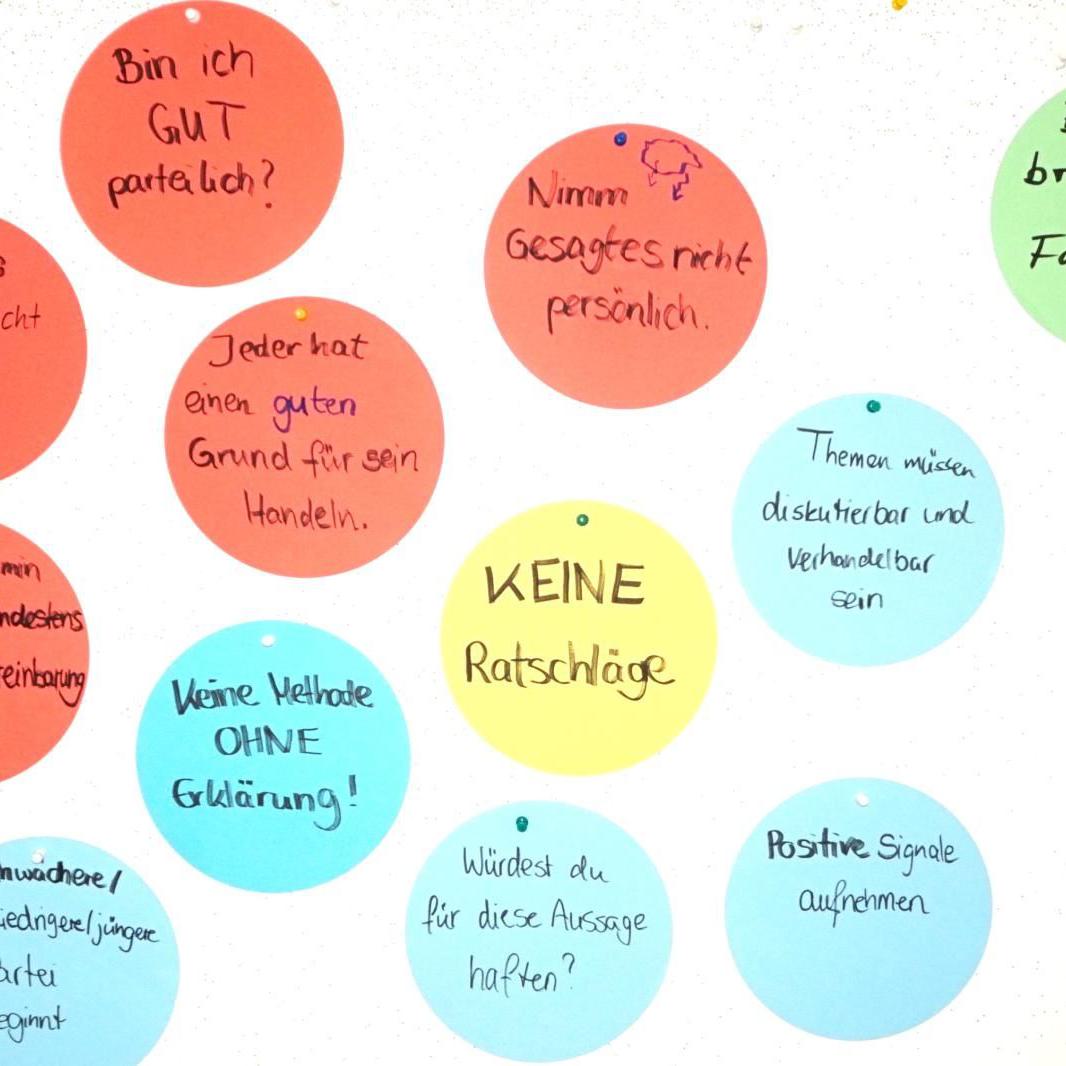 Bin ich
GUT
parteilich?
Nimm
Gesagtes nicht
persönlich.
br
cht
Jeder hat
einen guten
Grund für sein
Handeln.
Themen müssen
diskutierbar und
verhandelbar
sein
KEINE
Ratschläge
min
ndestens
einbarung
Keine Methode
OHNE
Erklärung!
hwächere/
iedrigere/jüngere
artei
eginnt
Würdest du
für diese Aussage
haften?
Positive Signale
aufnehmen